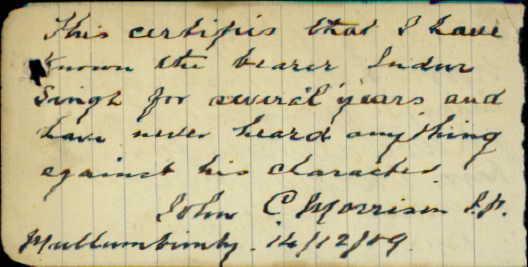 This certifies that I have
known the bearer Inder
Singh for several years and
have never heard anything
against his character.
John C Morrison J.P.
Mullumbimby. 14/12/09.